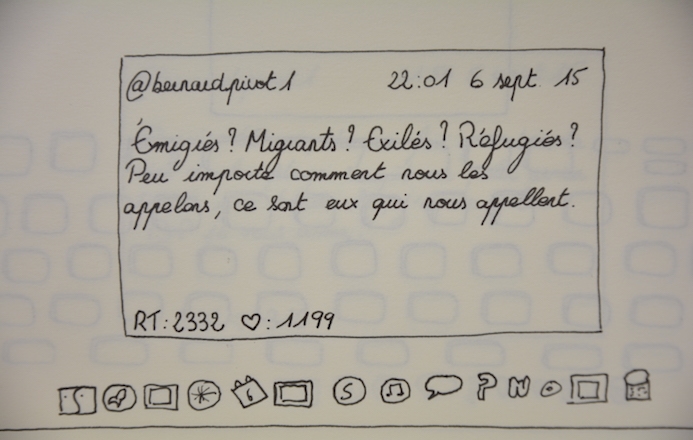 @bernardpivot1 22:01 6 sept. 15
Émigrés? Migrants? Exilés? Réfugiés?
Peu importe comment nous les
appelons, ce sont eux qui nous appellent.
RT: 2332 ♡: 1199
6 S ? N